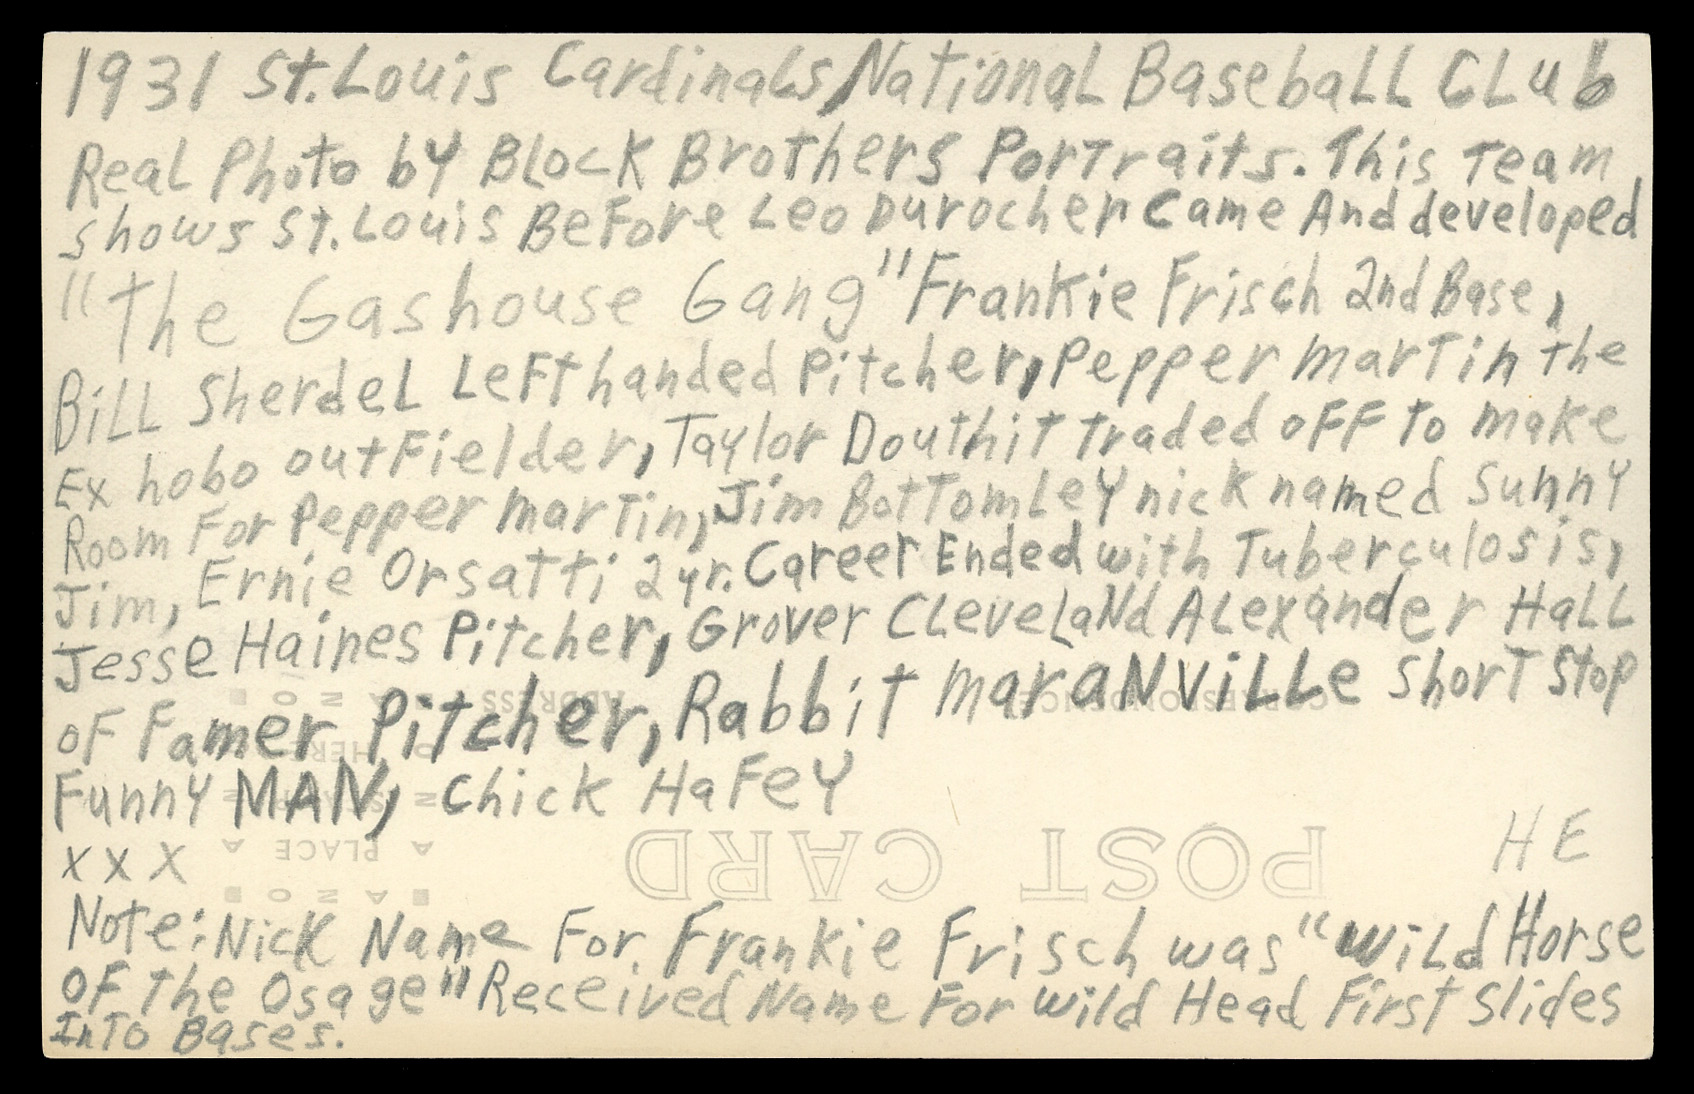 1931 St. Louis Cardinals, National Baseball Club
Real Photo by Block Brothers Portraits. This Team
shows St. Louis Before Leo Durocher Came And developed
"The Gashouse Gang" Frankie Frisch 2nd Base,
Bill Sherdel Left handed Pitcher, Pepper Martin the
Ex hobo outfielder, Taylor Douthit traded off to make
Room For Pepper Martin, Jim Bottomley nick named Sunny
Jim, Ernie Orsatti 2 yr. Career Ended with Tuberculosis,
Jesse Haines Pitcher, Grover Cleveland Alexander Hall
of Famer Pitcher, Rabbit Maranville Short Stop
Funny MAN, Chick Hafey
x x x
HE
Note: Nick Name For Frankie Frisch was "Wild Horse
of the Osage" Received Name For Wild Head First Slides
InTo Bases.
POST CARD
CORRESPONDENCE
ADDRESS
PLACE
STAMP
HERE
AZO
AZO